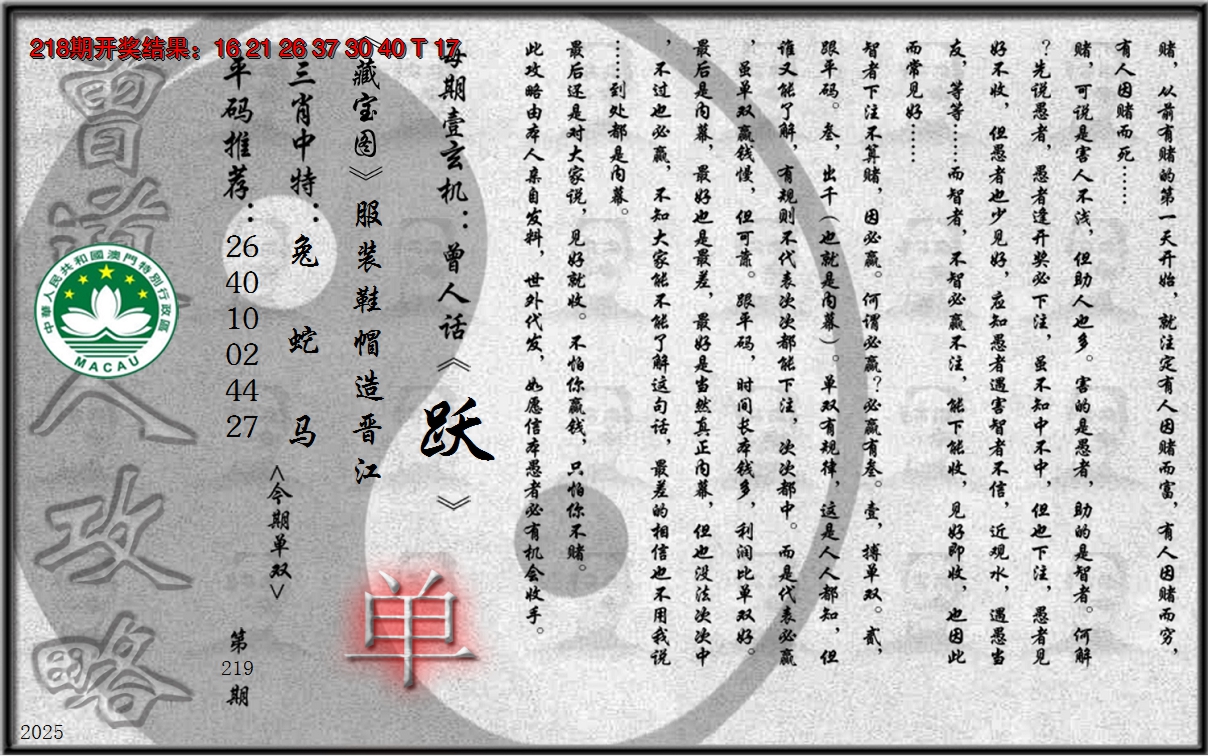 218期开奖结果：16 21 26 37 30 40 T 17
赌，从前有赌的第一天开始，就注定有人因赌而富，有人因赌而穷，
有人因赌而死……
赌，可说是害人不浅，但助人也多。害的是愚者，助的是智者。何解
？先说愚者，愚者逢开奖必下注，虽不知中不中，但也下注，愚者见
好不收，但愚者也少见好，应知愚者遇害智者不信，近观水，遇愚当
友，等等……而智者，不智必赢不注，能下能收，见好即收，也因此
而常见好……
智者下注不算赌，因必赢。何谓必赢？必赢有叁。壹，搏单双。贰，
跟平码。叁，出千（也就是内幕）。单双有规律，这是人人都知，但
谁又能了解，有规则不代表次次都能下注，次次都中。而是代表必赢
，虽单双赢钱慢，但可靠。跟平码，时间长本钱多，利润比单双好。
最后是内幕，最好也是最差，最好是当然真正内幕，但也没法次次中
，不过也必赢，不知大家能不能了解这句话，最差的相信也不用我说
……到处都是内幕。
最后还是对大家说，见好就收。不怕你赢钱，只怕你不赌。
此攻略由本人亲自发料，世外代发，如愿信本愚者必有机会收手。
每期壹玄机：曾人话《跃》
《藏宝图》服装鞋帽造晋江
单
三肖中特：兔 蛇 马
<今期单双>
平码推荐：26 40 10 02 44 27
第219期
曾道人攻略
中華人民共和國澳門特別行政區
MACAU
2025